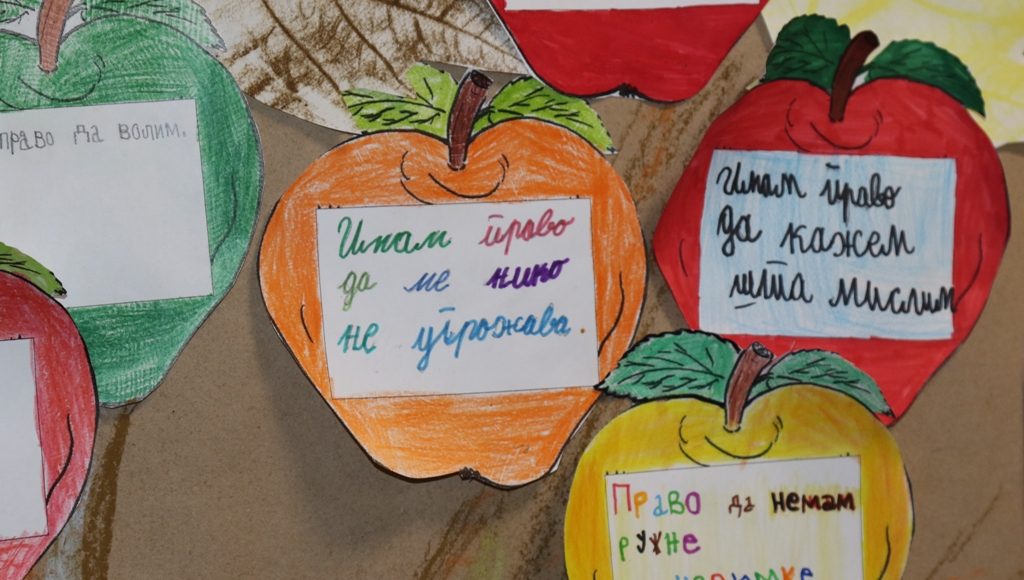 право да волим.
Имам право
да ме нико
не угрожава.
Имам право
да кажем
шта мислим
Право да немам
ружне